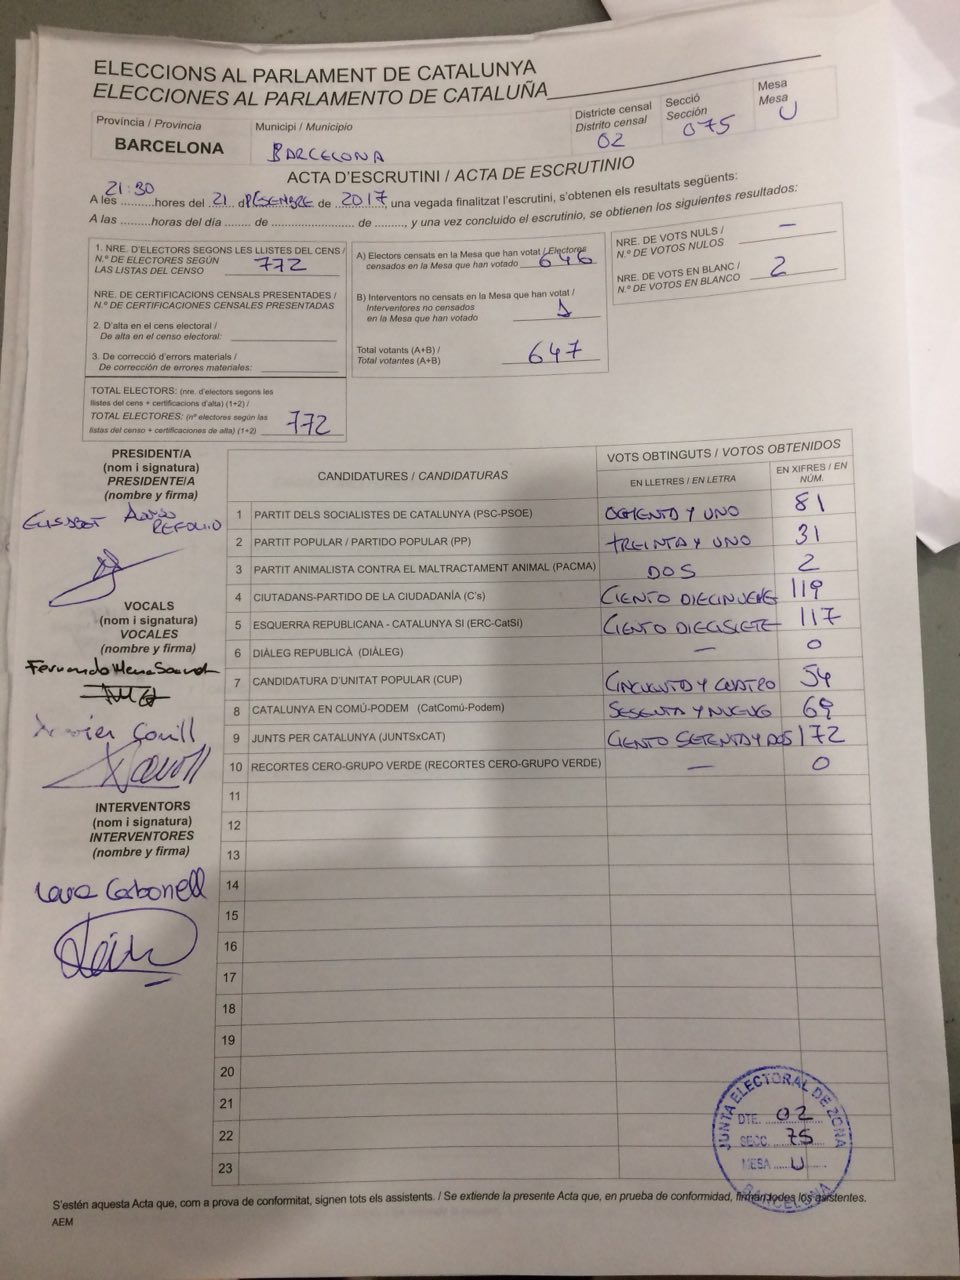 ELECCIONS AL PARLAMENT DE CATALUNYA
ELECCIONES AL PARLAMENTO DE CATALUÑA
Província / Provincia
BARCELONA
Municipi / Municipio
BARCELONA
Districte censal
Distrito censal
02
Secció
Sección
075
Mesa
Mesa
U
ACTA D'ESCRUTINI / ACTA DE ESCRUTINIO
21:30
A les .........hores del 21 d DESEMBRE de 2017, una vegada finalitzat l'escrutini, s'obtenen els resultats següents:
A las .........horas del día ....... de ........................ de ........, y una vez concluido el escrutinio, se obtienen los siguientes resultados:
1. NRE. D'ELECTORS SEGONS LES LLISTES DEL CENS /
N.º DE ELECTORES SEGÚN
LAS LISTAS DEL CENSO 772
NRE. DE CERTIFICACIONS CENSALS PRESENTADES /
N.º DE CERTIFICACIONES CENSALES PRESENTADAS
2. D'alta en el cens electoral /
De alta en el censo electoral:
3. De correcció d'errors materials /
De corrección de errores materiales:
TOTAL ELECTORS: (nre. d'electors segons les
llistes del cens + certificacions d'alta) (1+2) /
TOTAL ELECTORES: (nº electores según las
listas del censo + certificaciones de alta) (1+2) 772
A) Electors censats en la Mesa que han votat / Electores
censados en la Mesa que han votado 646
B) Interventors no censats en la Mesa que han votat /
Interventores no censados
en la Mesa que han votado 1
Total votants (A+B) /
Total votantes (A+B) 647
NRE. DE VOTS NULS /
N.º DE VOTOS NULOS —
NRE. DE VOTS EN BLANC /
N.º DE VOTOS EN BLANCO 2
PRESIDENT/A
(nom i signatura)
PRESIDENTE/A
(nombre y firma)
VOCALS
(nom i signatura)
VOCALES
(nombre y firma)
Xavier
INTERVENTORS
(nom i signatura)
INTERVENTORES
(nombre y firma)
Carbonell
CANDIDATURES / CANDIDATURAS
VOTS OBTINGUTS / VOTOS OBTENIDOS
EN LLETRES / EN LETRA
EN XIFRES / EN NÚM.
1 PARTIT DELS SOCIALISTES DE CATALUNYA (PSC-PSOE) OCHENTA Y UNO 81
2 PARTIT POPULAR / PARTIDO POPULAR (PP) TREINTA Y UNO 31
3 PARTIT ANIMALISTA CONTRA EL MALTRACTAMENT ANIMAL (PACMA) DOS 2
4 CIUTADANS-PARTIDO DE LA CIUDADANÍA (C's) CIENTO DIECINUEVE 119
5 ESQUERRA REPUBLICANA - CATALUNYA SÍ (ERC-CatSí) CIENTO DIECISIETE 117
6 DIÀLEG REPUBLICÀ (DIÀLEG) — 0
7 CANDIDATURA D'UNITAT POPULAR (CUP) CINCUENTA Y CUATRO 54
8 CATALUNYA EN COMÚ-PODEM (CatComú-Podem) SESENTA Y NUEVE 69
9 JUNTS PER CATALUNYA (JUNTSxCAT) CIENTO SETENTA Y DOS 172
10 RECORTES CERO-GRUPO VERDE (RECORTES CERO-GRUPO VERDE) — 0
11
12
13
14
15
16
17
18
19
20
21
22
23
JUNTA ELECTORAL DE ZONA
DTE. 02
SECC. 75
MESA U
BARCELONA
S'estén aquesta Acta que, com a prova de conformitat, signen tots els assistents. / Se extiende la presente Acta que, en prueba de conformidad, firman todos los asistentes.
AEM